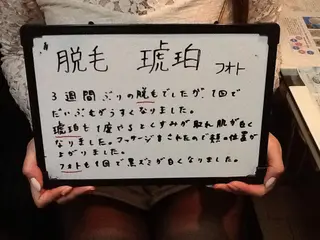 脱毛 琥珀 フォト
3週間ぶりの脱毛でしたが、1回で
だいぶ毛がうすくなりました。
琥珀も1度やるとくすみが取れ肌が白く
なりました。マッサージもされたので顔の位置が
上がりました。
フォトも1回で黒ズミが白くなりました。